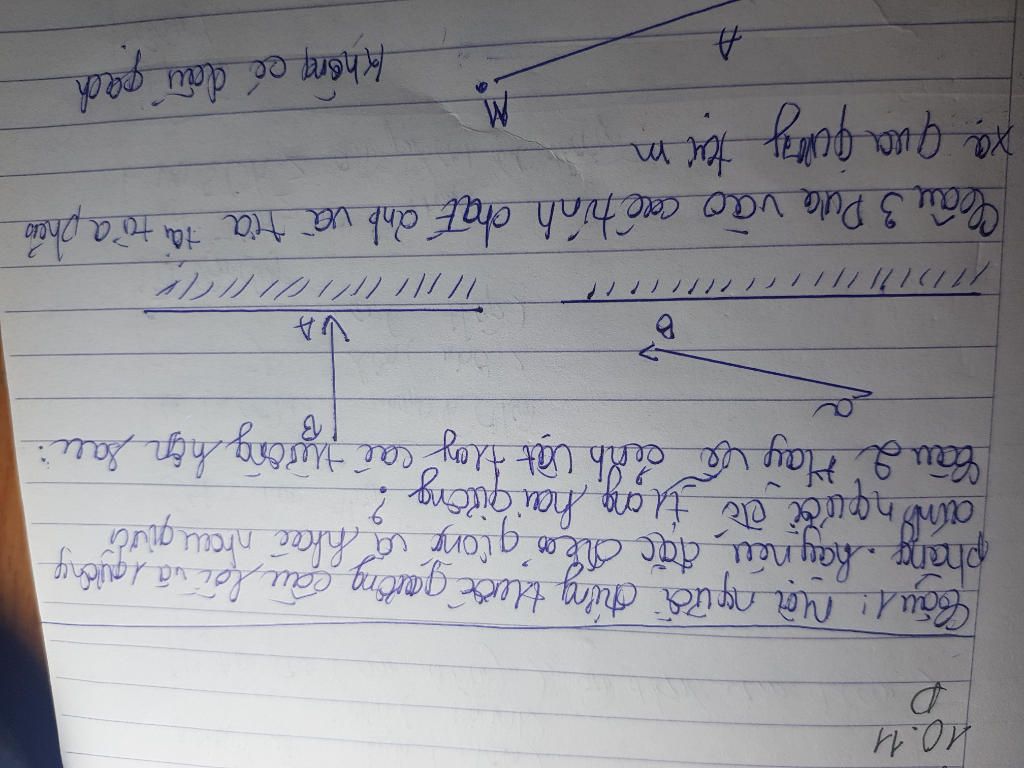 10.11
D
Câu 1: Một người đứng trước gương cầu lồi và 1 gương
phẳng. hãy nêu đặc điểm giống và khác nhau giữa
ảnh người đó trong hai gương?
Câu 2 Hãy vẽ ảnh vật trong các trường hợp sau:
a B
B A
Câu 3 Dựa vào các tính chất ảnh vẽ tia tới từ a phản
xạ qua gương tại m
M
A
Không có dấu gạch